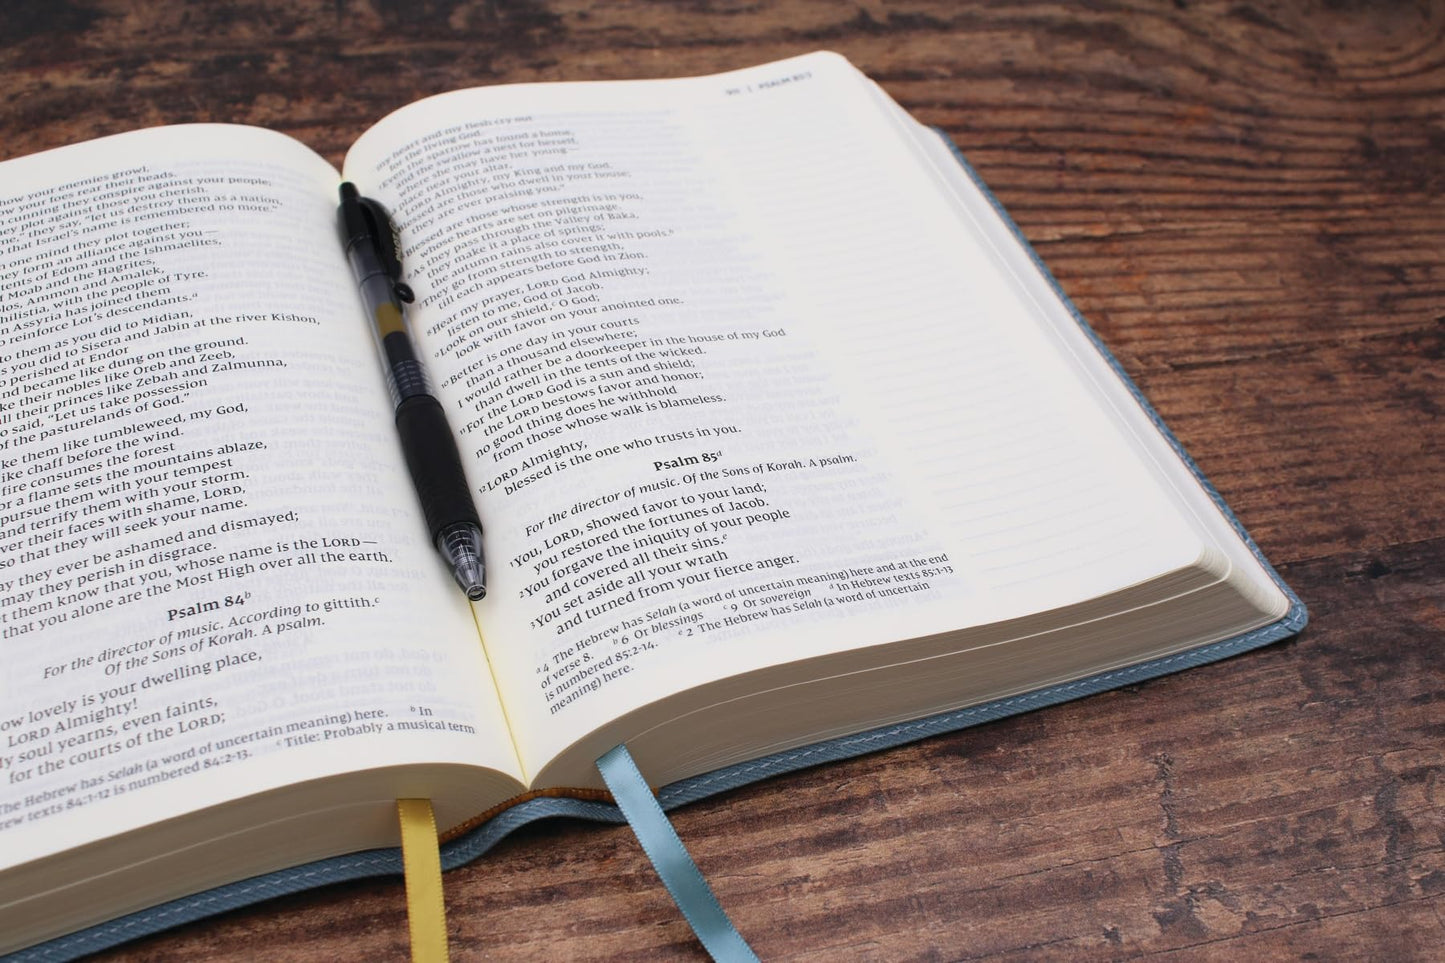 your enemies growl,
your foes rear their heads.
cunning they conspire against your people;
plot against those you cherish.
they say, “let us destroy them as a nation,
that Israel’s name is remembered no more.”
one mind they plot together;
form an alliance against you—
tents of Edom and the Ishmaelites,
Moab and the Hagrites,
Ammon and Amalek,
with the people of Tyre.
Assyria has joined them
reinforce Lot’s descendants.a
to them as you did to Midian,
as you did to Sisera and Jabin at the river Kishon,
perished at Endor
and became like dung on the ground.
their nobles like Oreb and Zeeb,
their princes like Zebah and Zalmunna,
said, “Let us take possession
of the pasturelands of God.”
them like tumbleweed, my God,
like chaff before the wind.
fire consumes the forest
or a flame sets the mountains ablaze,
pursue them with your tempest
and terrify them with your storm.
their faces with shame, LORD,
so that they will seek your name.
they ever be ashamed and dismayed;
may they perish in disgrace.
them know that you, whose name is the LORD—
that you alone are the Most High over all the earth.
Psalm 84b
For the director of music. According to gittith.c
Of the Sons of Korah. A psalm.
lovely is your dwelling place,
LORD Almighty!
soul yearns, even faints,
for the courts of the LORD;
The Hebrew has Selah (a word of uncertain meaning) here. b In
texts 84:1-12 is numbered 84:2-13. c Title: Probably a musical term
| PSALM 85:3
my heart and my flesh cry out
for the living God.
Even the sparrow has found a home,
and the swallow a nest for herself,
where she may have her young—
a place near your altar,
LORD Almighty, my King and my God.
Blessed are those who dwell in your house;
they are ever praising you.a
Blessed are those whose strength is in you,
whose hearts are set on pilgrimage.
6 As they pass through the Valley of Baka,
they make it a place of springs;
the autumn rains also cover it with pools.b
7 They go from strength to strength,
till each appears before God in Zion.
8 Hear my prayer, LORD God Almighty;
listen to me, God of Jacob.
9 Look on our shield,c O God;
look with favor on your anointed one.
10 Better is one day in your courts
than a thousand elsewhere;
I would rather be a doorkeeper in the house of my God
than dwell in the tents of the wicked.
11 For the LORD God is a sun and shield;
the LORD bestows favor and honor;
no good thing does he withhold
from those whose walk is blameless.
12 LORD Almighty,
blessed is the one who trusts in you.
Psalm 85d
For the director of music. Of the Sons of Korah. A psalm.
1 You, LORD, showed favor to your land;
you restored the fortunes of Jacob.
2 You forgave the iniquity of your people
and covered all their sins.e
3 You set aside all your wrath
and turned from your fierce anger.
a 4 The Hebrew has Selah (a word of uncertain meaning) here and at the end
of verse 8. b 6 Or blessings c 9 Or sovereign d In Hebrew texts 85:1-13
is numbered 85:2-14. e 2 The Hebrew has Selah (a word of uncertain
meaning) here.